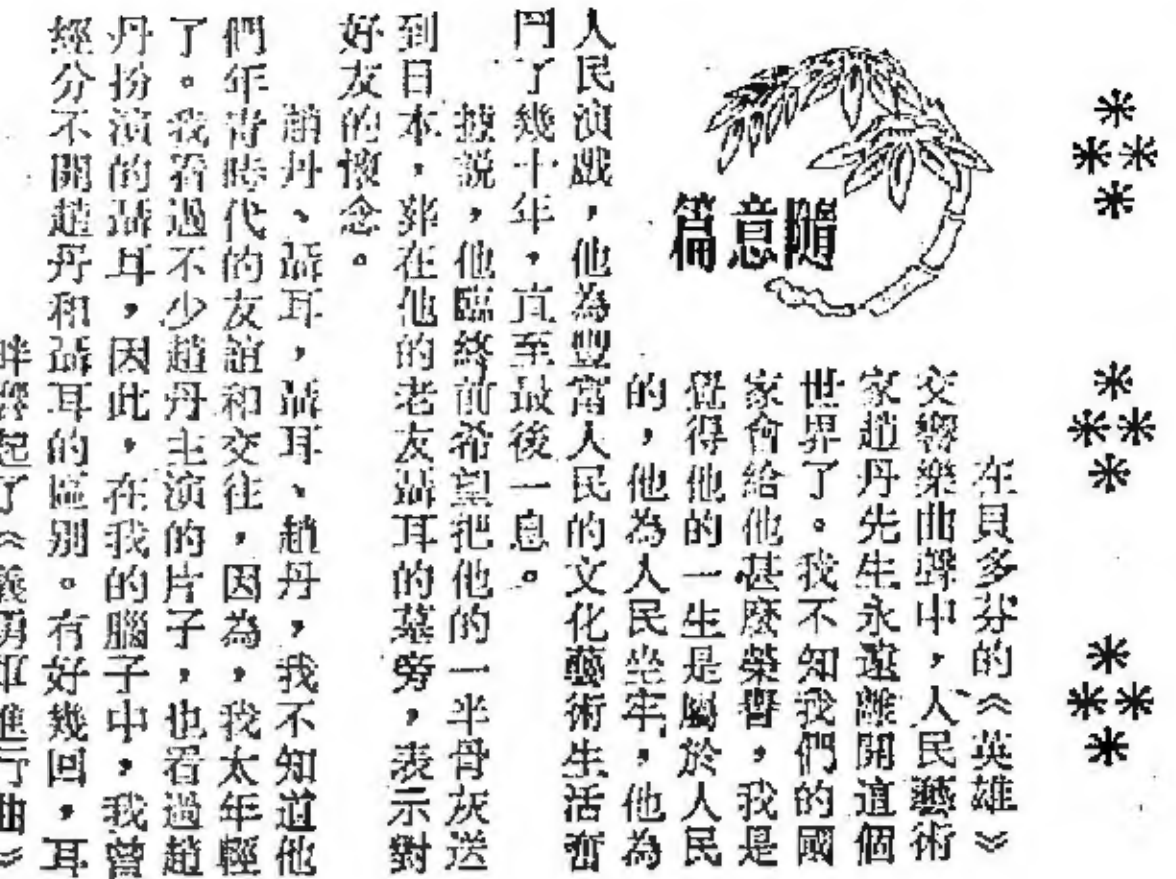 隨意篇
在貝多芬的《英雄》
交響樂曲聲中，人民藝術
家趙丹先生永遠離開這個
世界了。我不知我們的國
家會給他甚麼榮譽，我是
覺得他的一生是屬於人民
的，他為人民坐牢，他為
人民演戲，他為豐富人民的文化藝術生活奮
鬥了幾十年，直至最後一息。
據說，他臨終前希望把他的一半骨灰送
到日本，葬在他的老友聶耳的墓旁，表示對
好友的懷念。
趙丹、聶耳，聶耳、趙丹，我不知道他
們年青時代的友誼和交往，因為，我太年輕
了。我看過不少趙丹主演的片子，也看過趙
丹扮演的聶耳，因此，在我的腦子中，我曾
經分不開趙丹和聶耳的區別。有好幾回，耳
畔響起了《義勇軍進行曲》